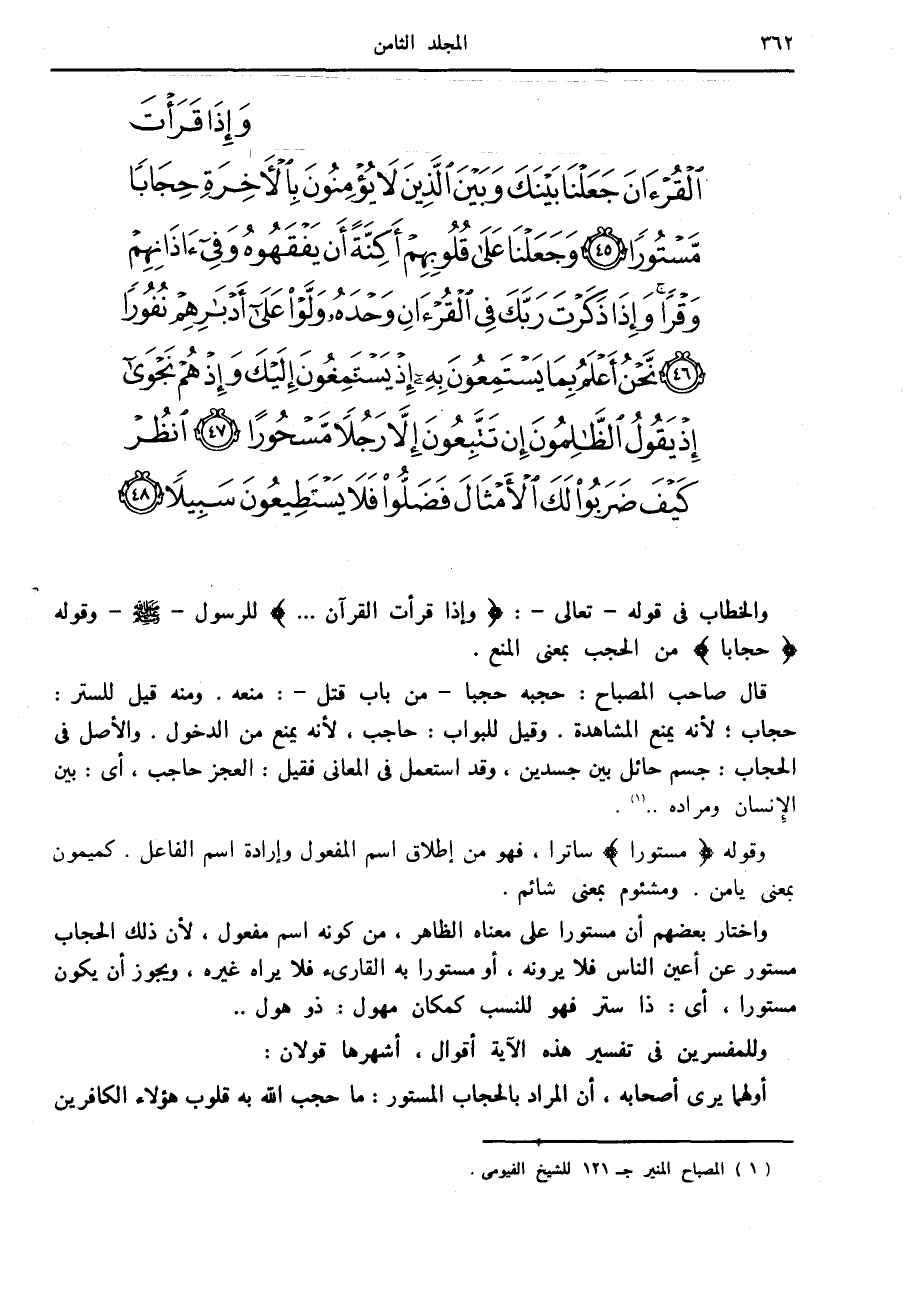 ٣٦٢ المجلد الثامن
وَإِذَا قَرَأْتَ
ٱلْقُرْءَانَ جَعَلْنَا بَيْنَكَ وَبَيْنَ ٱلَّذِينَ لَا يُؤْمِنُونَ بِٱلْأَخِرَةِ حِجَابًا
مَّسْتُورًا ﴿٤٥﴾ وَجَعَلْنَا عَلَىٰ قُلُوبِهِمْ أَكِنَّةً أَن يَفْقَهُوهُ وَفِىٓ ءَاذَانِهِمْ
وَقْرًا ۚ وَإِذَا ذَكَرْتَ رَبَّكَ فِى ٱلْقُرْءَانِ وَحْدَهُۥ وَلَّوْا۟ عَلَىٰٓ أَدْبَـٰرِهِمْ نُفُورًا
﴿٤٦﴾ نَّحْنُ أَعْلَمُ بِمَا يَسْتَمِعُونَ بِهِۦٓ إِذْ يَسْتَمِعُونَ إِلَيْكَ وَإِذْ هُمْ نَجْوَىٰٓ
إِذْ يَقُولُ ٱلظَّـٰلِمُونَ إِن تَتَّبِعُونَ إِلَّا رَجُلًا مَّسْحُورًا ﴿٤٧﴾ ٱنظُرْ
كَيْفَ ضَرَبُوا۟ لَكَ ٱلْأَمْثَالَ فَضَلُّوا۟ فَلَا يَسْتَطِيعُونَ سَبِيلًا ﴿٤٨﴾
والخطاب فى قوله - تعالى - : ﴿ وإذا قرأت القرآن ... ﴾ للرسول - ﷺ - وقوله
﴿ حجابا ﴾ من الحجب بمعنى المنع .
قال صاحب المصباح : حجبه حجبا - من باب قتل - : منعه . ومنه قيل للستر :
حجاب ؛ لأنه يمنع المشاهدة . وقيل للبواب : حاجب ، لأنه يمنع من الدخول . والأصل فى
الحجاب : جسم حائل بين جسدين ، وقد استعمل فى المعانى فقيل : العجز حاجب ، أى : بين
الإنسان ومراده ..(١) .
وقوله ﴿ مستورا ﴾ ساترا ، فهو من إطلاق اسم المفعول وإرادة اسم الفاعل . كميمون
بمعنى يامن . ومشئوم بمعنى شائم .
واختار بعضهم أن مستورا على معناه الظاهر ، من كونه اسم مفعول ، لأن ذلك الحجاب
مستور عن أعين الناس فلا يرونه ، أو مستورا به القارىء فلا يراه غيره ، ويجوز أن يكون
مستورا ، أى : ذا ستر فهو للنسب كمكان مهول : ذو هول ..
وللمفسرين فى تفسير هذه الآية أقوال ، أشهرها قولان :
أولهما يرى أصحابه ، أن المراد بالحجاب المستور : ما حجب الله به قلوب هؤلاء الكافرين
( ١ ) المصباح المنير جـ ١٢١ للشيخ الفيومى .